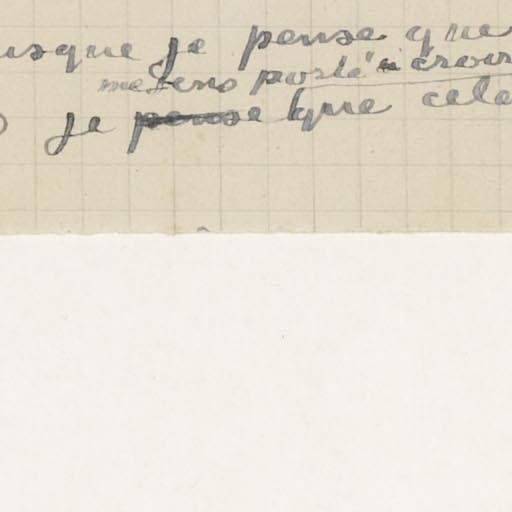 usque je pense que
me sens porté à croir
je pense que cela